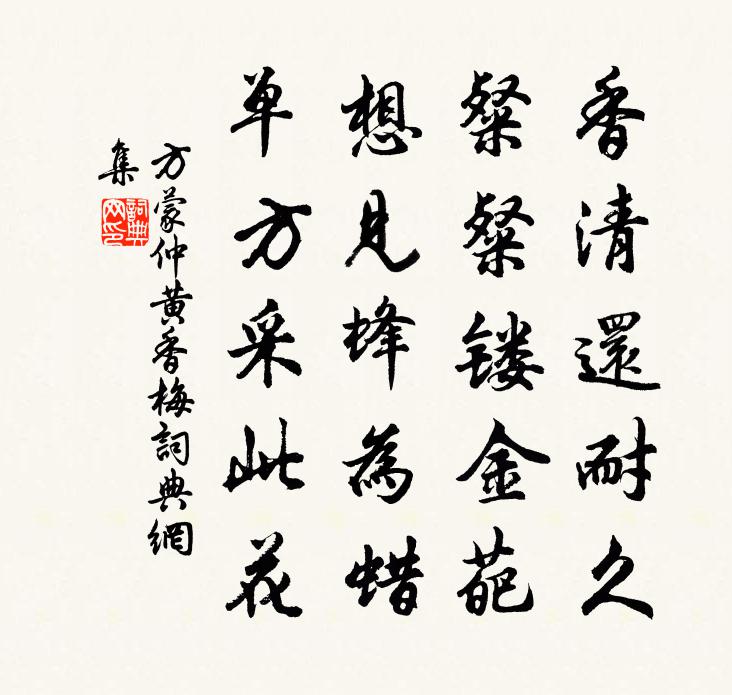 香清還耐久
粲粲镂金葩
想見蜂為蜡
单方采此花
方蒙仲黄香梅詞典網
集
詞典網印